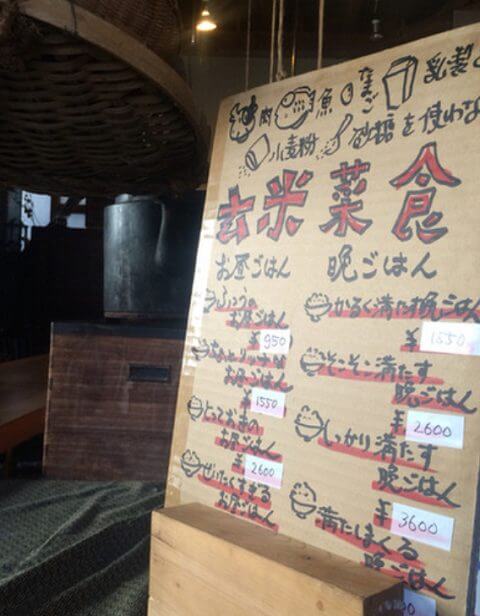 肉 魚 たまご 乳製
小麦粉 砂糖を使わな
玄米菜食
お昼ごはん
ふつうの
お昼ごはん
¥950
お昼ごはん
¥1550
とっておきの
お昼ごはん
¥2600
ぜいたくすぎる
お昼ごはん
晩ごはん
かるく満たす晩ごはん
¥1550
そこそこ満たす
晩ごはん
¥2600
しっかり満たす
晩ごはん
¥3600
満たしまくる
晩ごはん